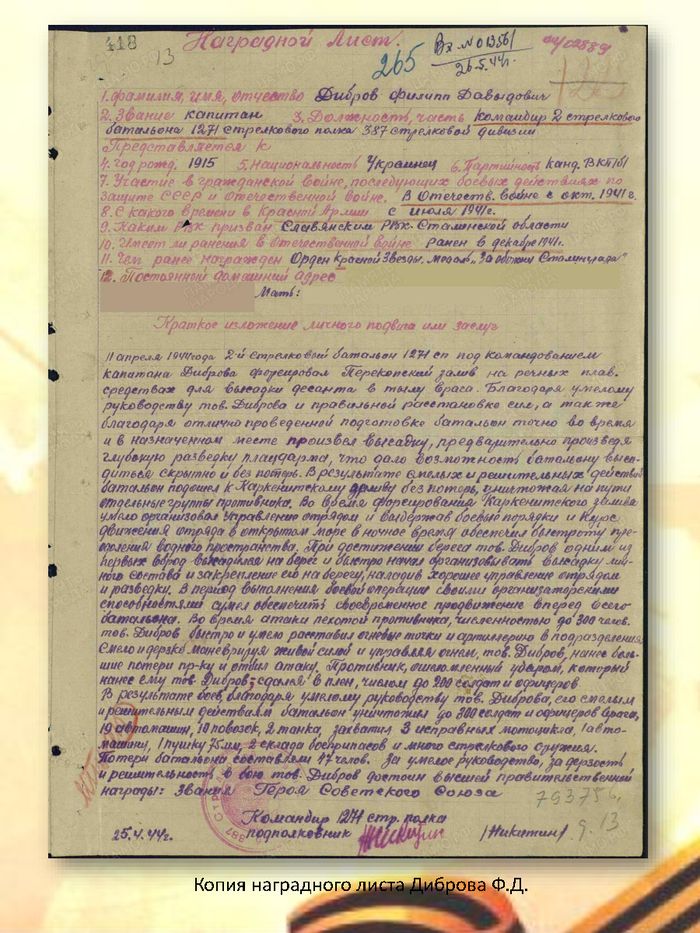 418
13
Наградной Лист.
265
Вх. №01356/
26.5.44г.
1. Фамилия, имя, отчество Дибров Филипп Давыдович
2. Звание капитан 3. Должность, часть Командир 2 стрелкового
батальона 1271 стрелкового полка 387 стрелковой дивизии
Представляется к
4. Год рожд. 1915 5. Национальность Украинец 6. Партийность канд. ВКП/б/
7. Участие в гражданской войне, последующих боевых действиях по
защите СССР и отечественной войне. В Отечеств. войне с окт. 1941 г.
8. С какого времени в Красной Армии с июля 1941г.
9. Каким РВК призван Славянским РВК Сталинской области
10. Имеет ли ранения в Отечественной войне ранен в декабре 1941г.
11. Чем ранее награжден Орден Красной Звезды. Медаль "За оборону Сталинграда"
12. Постоянный домашний адрес
Мать:
Краткое изложение личного подвига или заслуг
11 апреля 1944 года 2-й стрелковый батальон 1271 сп под командованием
капитана Диброва форсировал Перекопский залив на речных плав.
средствах для высадки десанта в тылу врага. Благодаря умелому
руководству тов. Диброва и правильной расстановке сил, а также
благодаря отлично проведенной подготовке батальон точно во время
и в назначенном месте произвел высадку, предварительно произведя
глубокую разведку плацдарма, что дало возможность батальону выса-
диться скрытно и без потерь. В результате смелых и решительных действий
батальон подошел к Каркенитскому заливу без потерь, уничтожая на пути
отдельные группы противника. Во время форсирования Каркенитского залива
умело организовал управление отрядом и выдержав боевые порядки и курс
движения отряда в открытом море в ночное время обеспечил быстроту пре-
одоления водного пространства. При достижении берега тов. Дибров одним из
первых вброд высадился на берег и быстро начал организовывать высадку лич-
ного состава и закрепление его на берегу, наладив хорошее управление отрядом
и разведки. В период выполнения боевой операции своими организаторскими
способностями сумел обеспечить своевременное продвижение вперед всего
батальона. Во время атаки пехотой противника, численностью до 300 челов.
тов. Дибров быстро и умело расставил огневые точки и артиллерию в подразделения.
Смело и дерзко маневрируя живой силой и управляя огнем, тов. Дибров, нанес боль-
шие потери пр-ку и отбил атаку. Противник, ошеломленный ударом, который
нанес ему тов. Дибров-сдался в плен, числом до 200 солдат и офицеров.
В результате боев, благодаря умелому руководству тов. Диброва, его смелым
и решительным действиям батальон уничтожил до 300 солдат и офицеров врага,
19 автомашин, 10 повозок, 2 танка, захватил 3 исправных мотоцикла, 1 авто-
машину, 1 пушку 75 мм, 2 склада боеприпасов и много стрелкового оружия.
Потери батальона составляли 47 челов. За умелое руководство, за дерзость
и решительность в бою тов. Дибров достоин высшей правительственной
награды: звания Героя Советского Союза
793756
Командир 1271 стр. полка
25.4.44г. подполковник /Никитин/
9.13
Копия наградного листа Диброва Ф.Д.